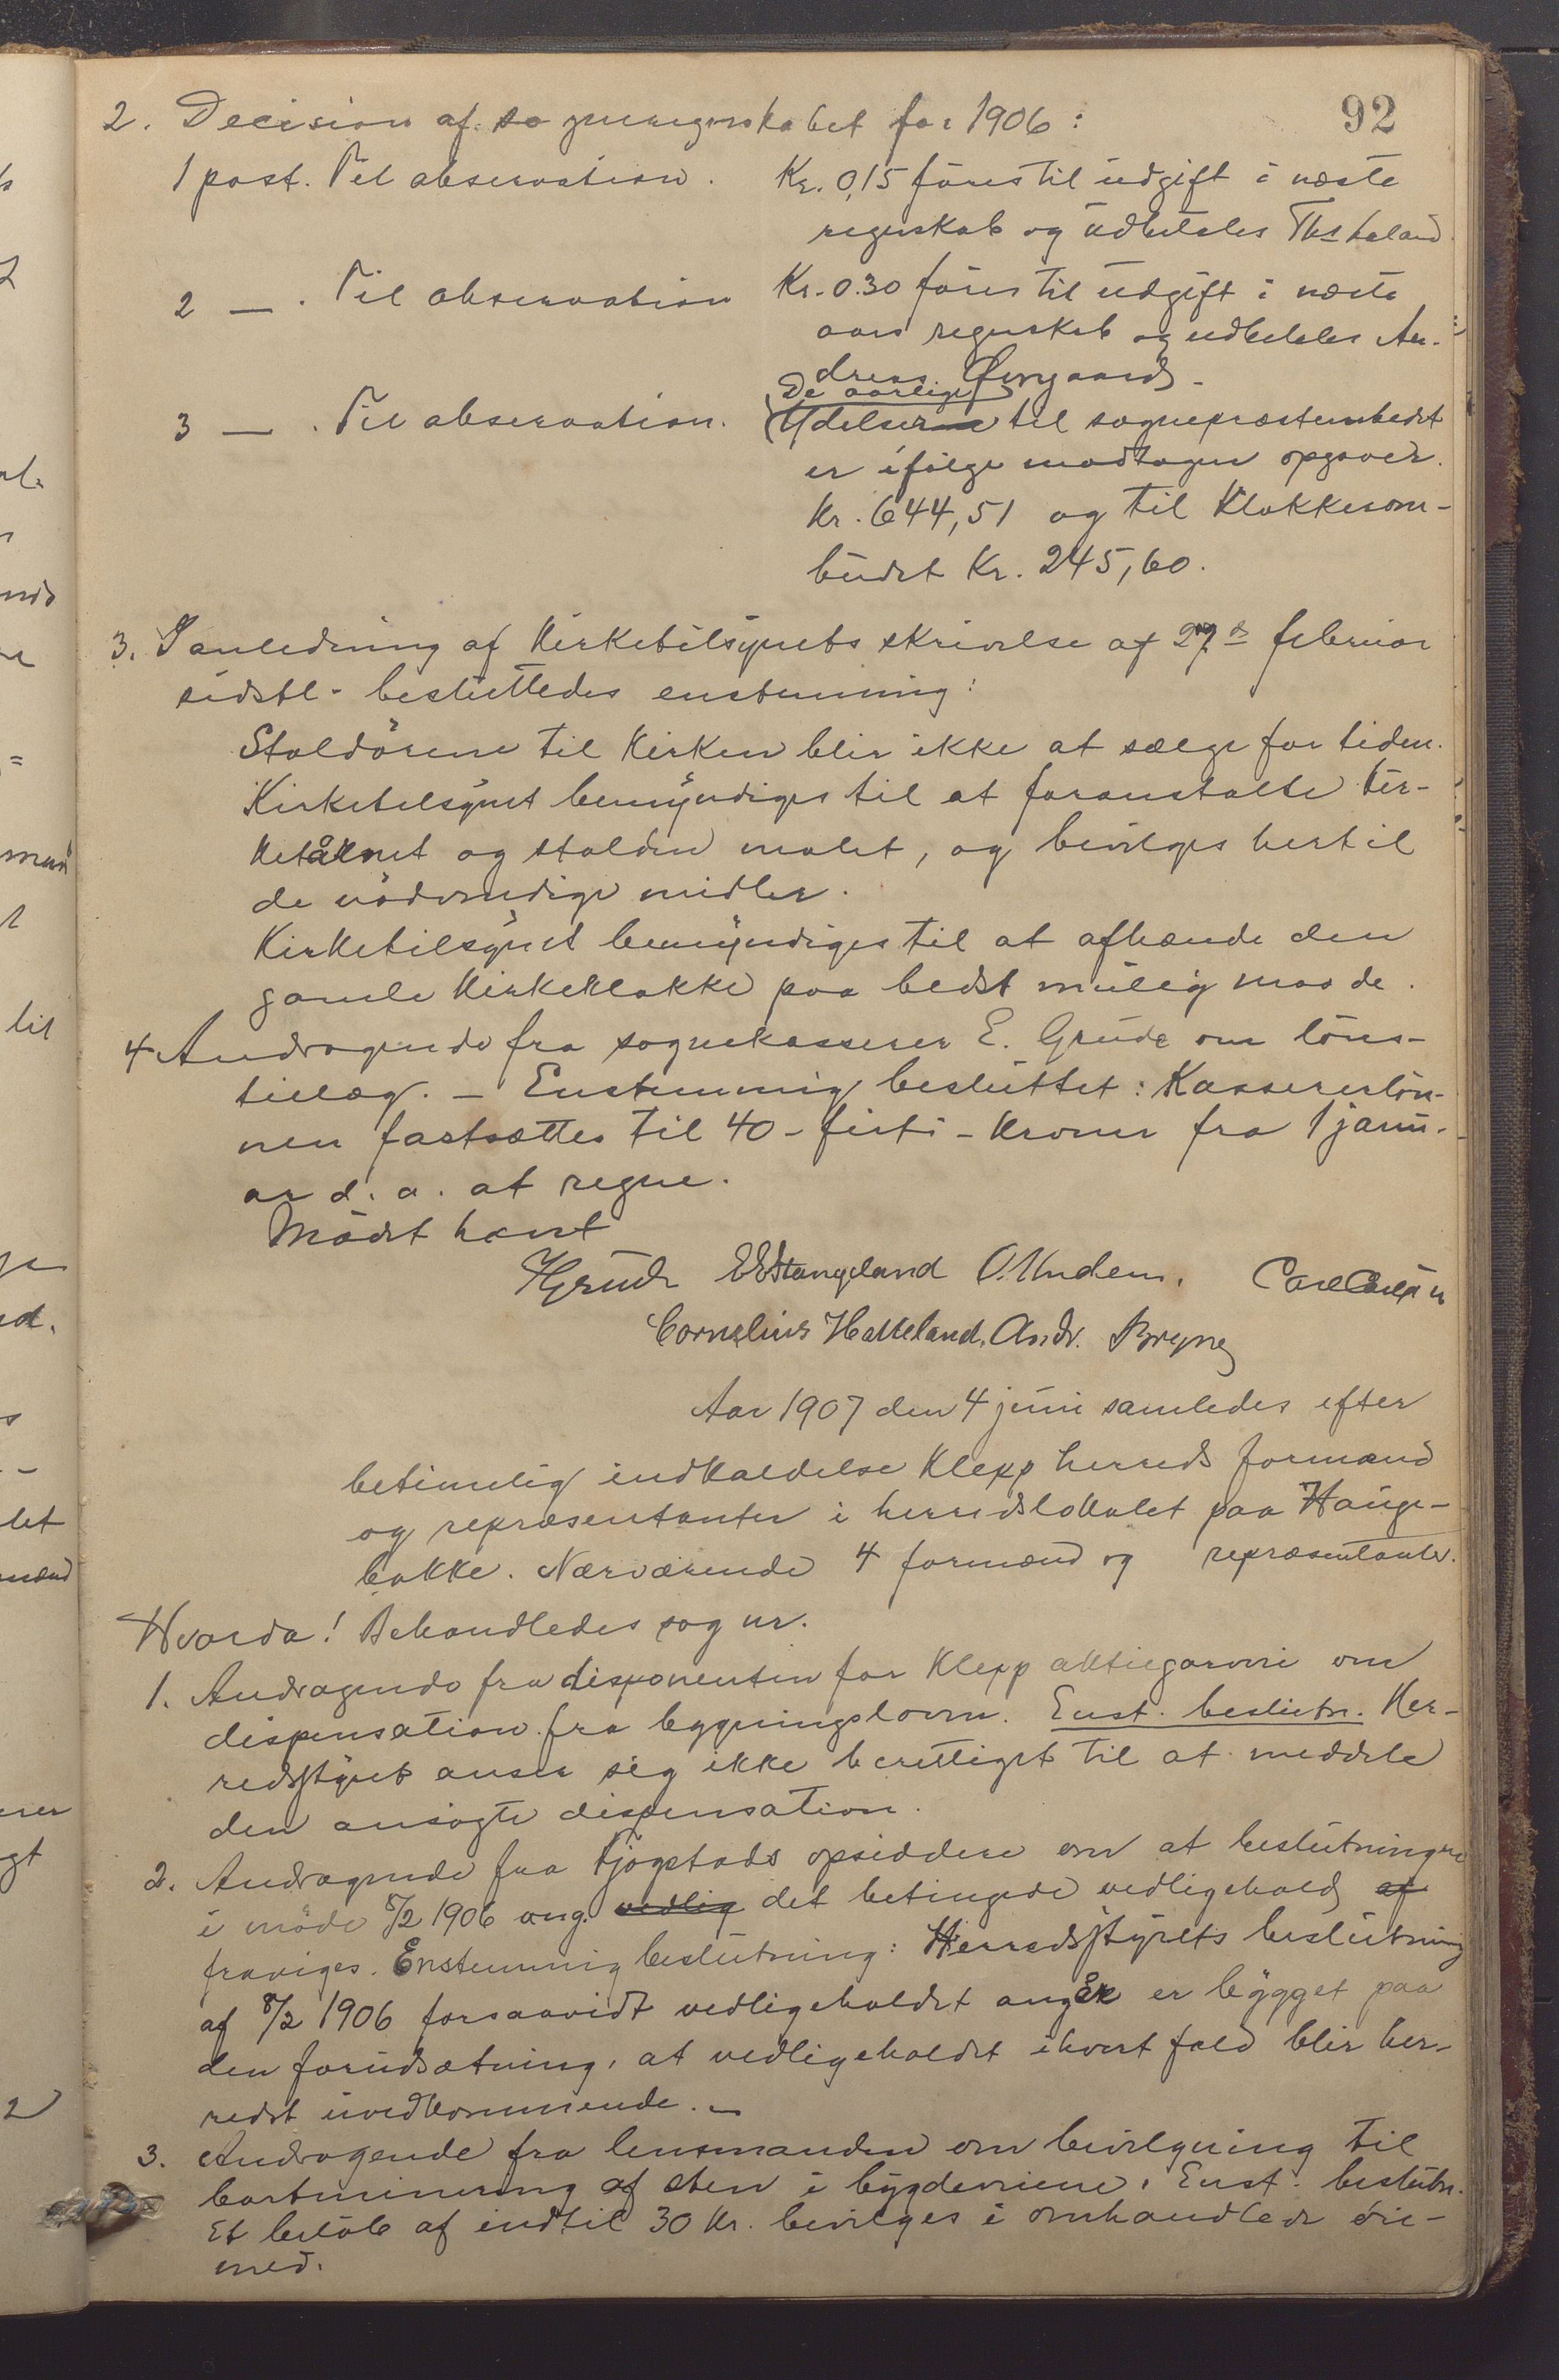 92
2. Decision af sogneregnskabet for 1906:
1 post. Til observation. Kr. 0,15 føres til udgift i næste
regnskab og udbetales Ths Laland.
2 — . Til observation Kr. 0.30 føres til udgift i næste
aars regnskab og udbetales An-
dreas Øvrgaard.
De aarlige
3 — . Til observation. Ydelser til sogneprestembedet
er ifølge modtagen opgave
Kr. 644,51 og til Klokkerom-
budet Kr. 245,60.
3. I anledning af Kirketilsynets skrivelse af 27de februar
sidstl. besluttedes enstemmig:
Stoldörene til Kirken blir ikke at sælge for tiden.
Kirketilsynet bemyndiges til at foranstalte kir-
ketårnet og stolden malet, og bevilges hertil
de nödvendige midler.
Kirketilsynet bemyndiges til at afhænde den
gamle Kirkeklokke paa bedst mulig maade.
4. Andragende fra sognekasserer E. Grude om löns-
tillæg. – Enstemmig besluttet: Kassererlön-
nen fastsættes til 40 – firti – kroner fra 1 janu-
ar d. a. at regne.
Mödet hævet
HGrude EEStangeland O. Undem. Carl Carlsen
Cornelius Hatteland, Andr. Bryne
Aar 1907 den 4 juni samledes efter
betimelig indkaldelse Klepp herreds formænd
og repræsentanter i herredslokalet paa Hauge-
bakke. Nærværende 4 formænd og repræsentanter.
Hvorda! Behandledes sag nr.
1. Andragende fra disponenten for Klepp aktiegarveri om
dispensation fra bygningsloven. Enst. beslutn. Her-
redsstyret anser sig ikke berettiget til at meddele
den ansögte dispensation.
2. Andragende fra Tjögstads opsiddere om at beslutningen
i möde 8/2 1906 ang. vedlig det betingede vedligehold af
fraviges. Enstemmig beslutning: Herredsstyrets beslutning
af 8/2 1906 forsaavidt vedligeholdet angår er bygget paa
den forudsætning, at vedligeholdet ihvert fald blir her-
redet uvedkommende. –
3. Andragende fra lensmanden om bevilgning til
bortminering af sten i bygdeveiene. Enst. beslutn.
Et belöb af indtil 30 kr. bevilges i omhandlede öie-
med.